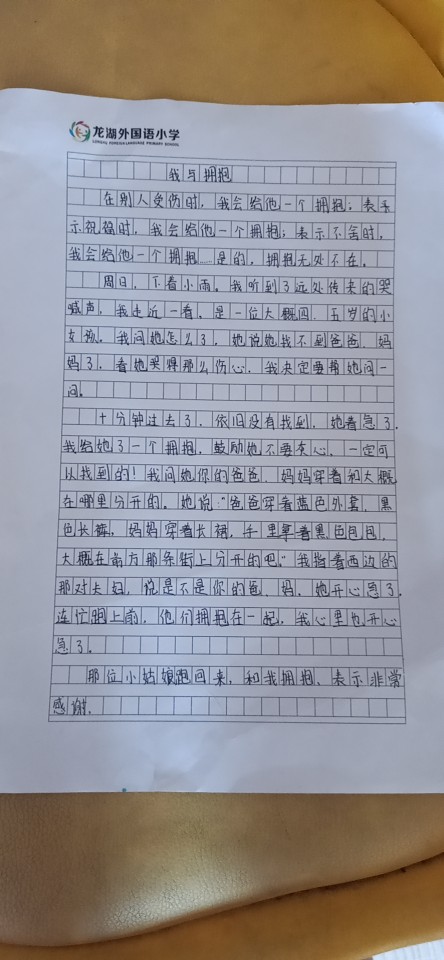 龙湖外国语小学
LONGHU FOREIGN LANGUAGE PRIMARY SCHOOL
我与拥抱
在别人受伤时，我会给他一个拥抱；表
示祝福时，我会给他一个拥抱；表示不舍时，
我会给他一个拥抱……是的，拥抱无处不在。
周日，下着小雨。我听到了远处传来的哭
喊声，我走近一看，是一位大概四、五岁的小
女孩。我问她怎么了，她说她找不到爸爸、妈
妈了，看她哭得那么伤心，我决定帮她问一
问。
十分钟过去了，依旧没有找到，她着急了。
我给她了一个拥抱，鼓励她不要灰心，一定可
以找到的！我问她你的爸爸、妈妈穿着和大概
在哪里分开的。她说："爸爸穿着蓝色外套，黑
色长裤，妈妈穿着长裙，手里拿着黑色包包，
大概在前方那条街上分开的吧。"我指着西边的
那对夫妇，说是不是你的爸、妈，她开心急了，
连忙跑上前，他们拥抱在一起，我心里也开心
急了。
那位小姑娘跑回来，和我拥抱、表示非常
感谢。